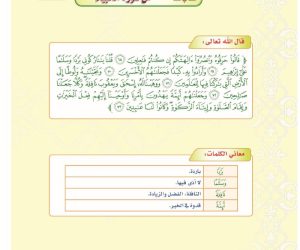 من سورة الأنبياء
قال الله تعالى:
﴿ قَالُوا حَرِّقُوهُ وَانصُرُوا آلِهَتَكُمْ إِن كُنتُمْ فَاعِلِينَ ۝ قُلْنَا يَا نَارُ كُونِي بَرْدًا وَسَلَامًا
عَلَىٰ إِبْرَاهِيمَ ۝ وَأَرَادُوا بِهِ كَيْدًا فَجَعَلْنَاهُمُ الْأَخْسَرِينَ ۝ وَنَجَّيْنَاهُ وَلُوطًا إِلَى
الْأَرْضِ الَّتِي بَارَكْنَا فِيهَا لِلْعَالَمِينَ ۝ وَوَهَبْنَا لَهُ إِسْحَاقَ وَيَعْقُوبَ نَافِلَةً وَكُلًّا جَعَلْنَا
صَالِحِينَ ۝ وَجَعَلْنَاهُمْ أَئِمَّةً يَهْدُونَ بِأَمْرِنَا وَأَوْحَيْنَا إِلَيْهِمْ فِعْلَ الْخَيْرَاتِ
وَإِقَامَ الصَّلَاةِ وَإِيتَاءَ الزَّكَاةِ وَكَانُوا لَنَا عَابِدِينَ ۝ ﴾
معاني الكلمات:
بَرْدًا باردة.
وَسَلَامًا لا أذى فيها.
نَافِلَةً النافلة: الفضل والزيادة.
أَئِمَّةً قدوة في الخير.